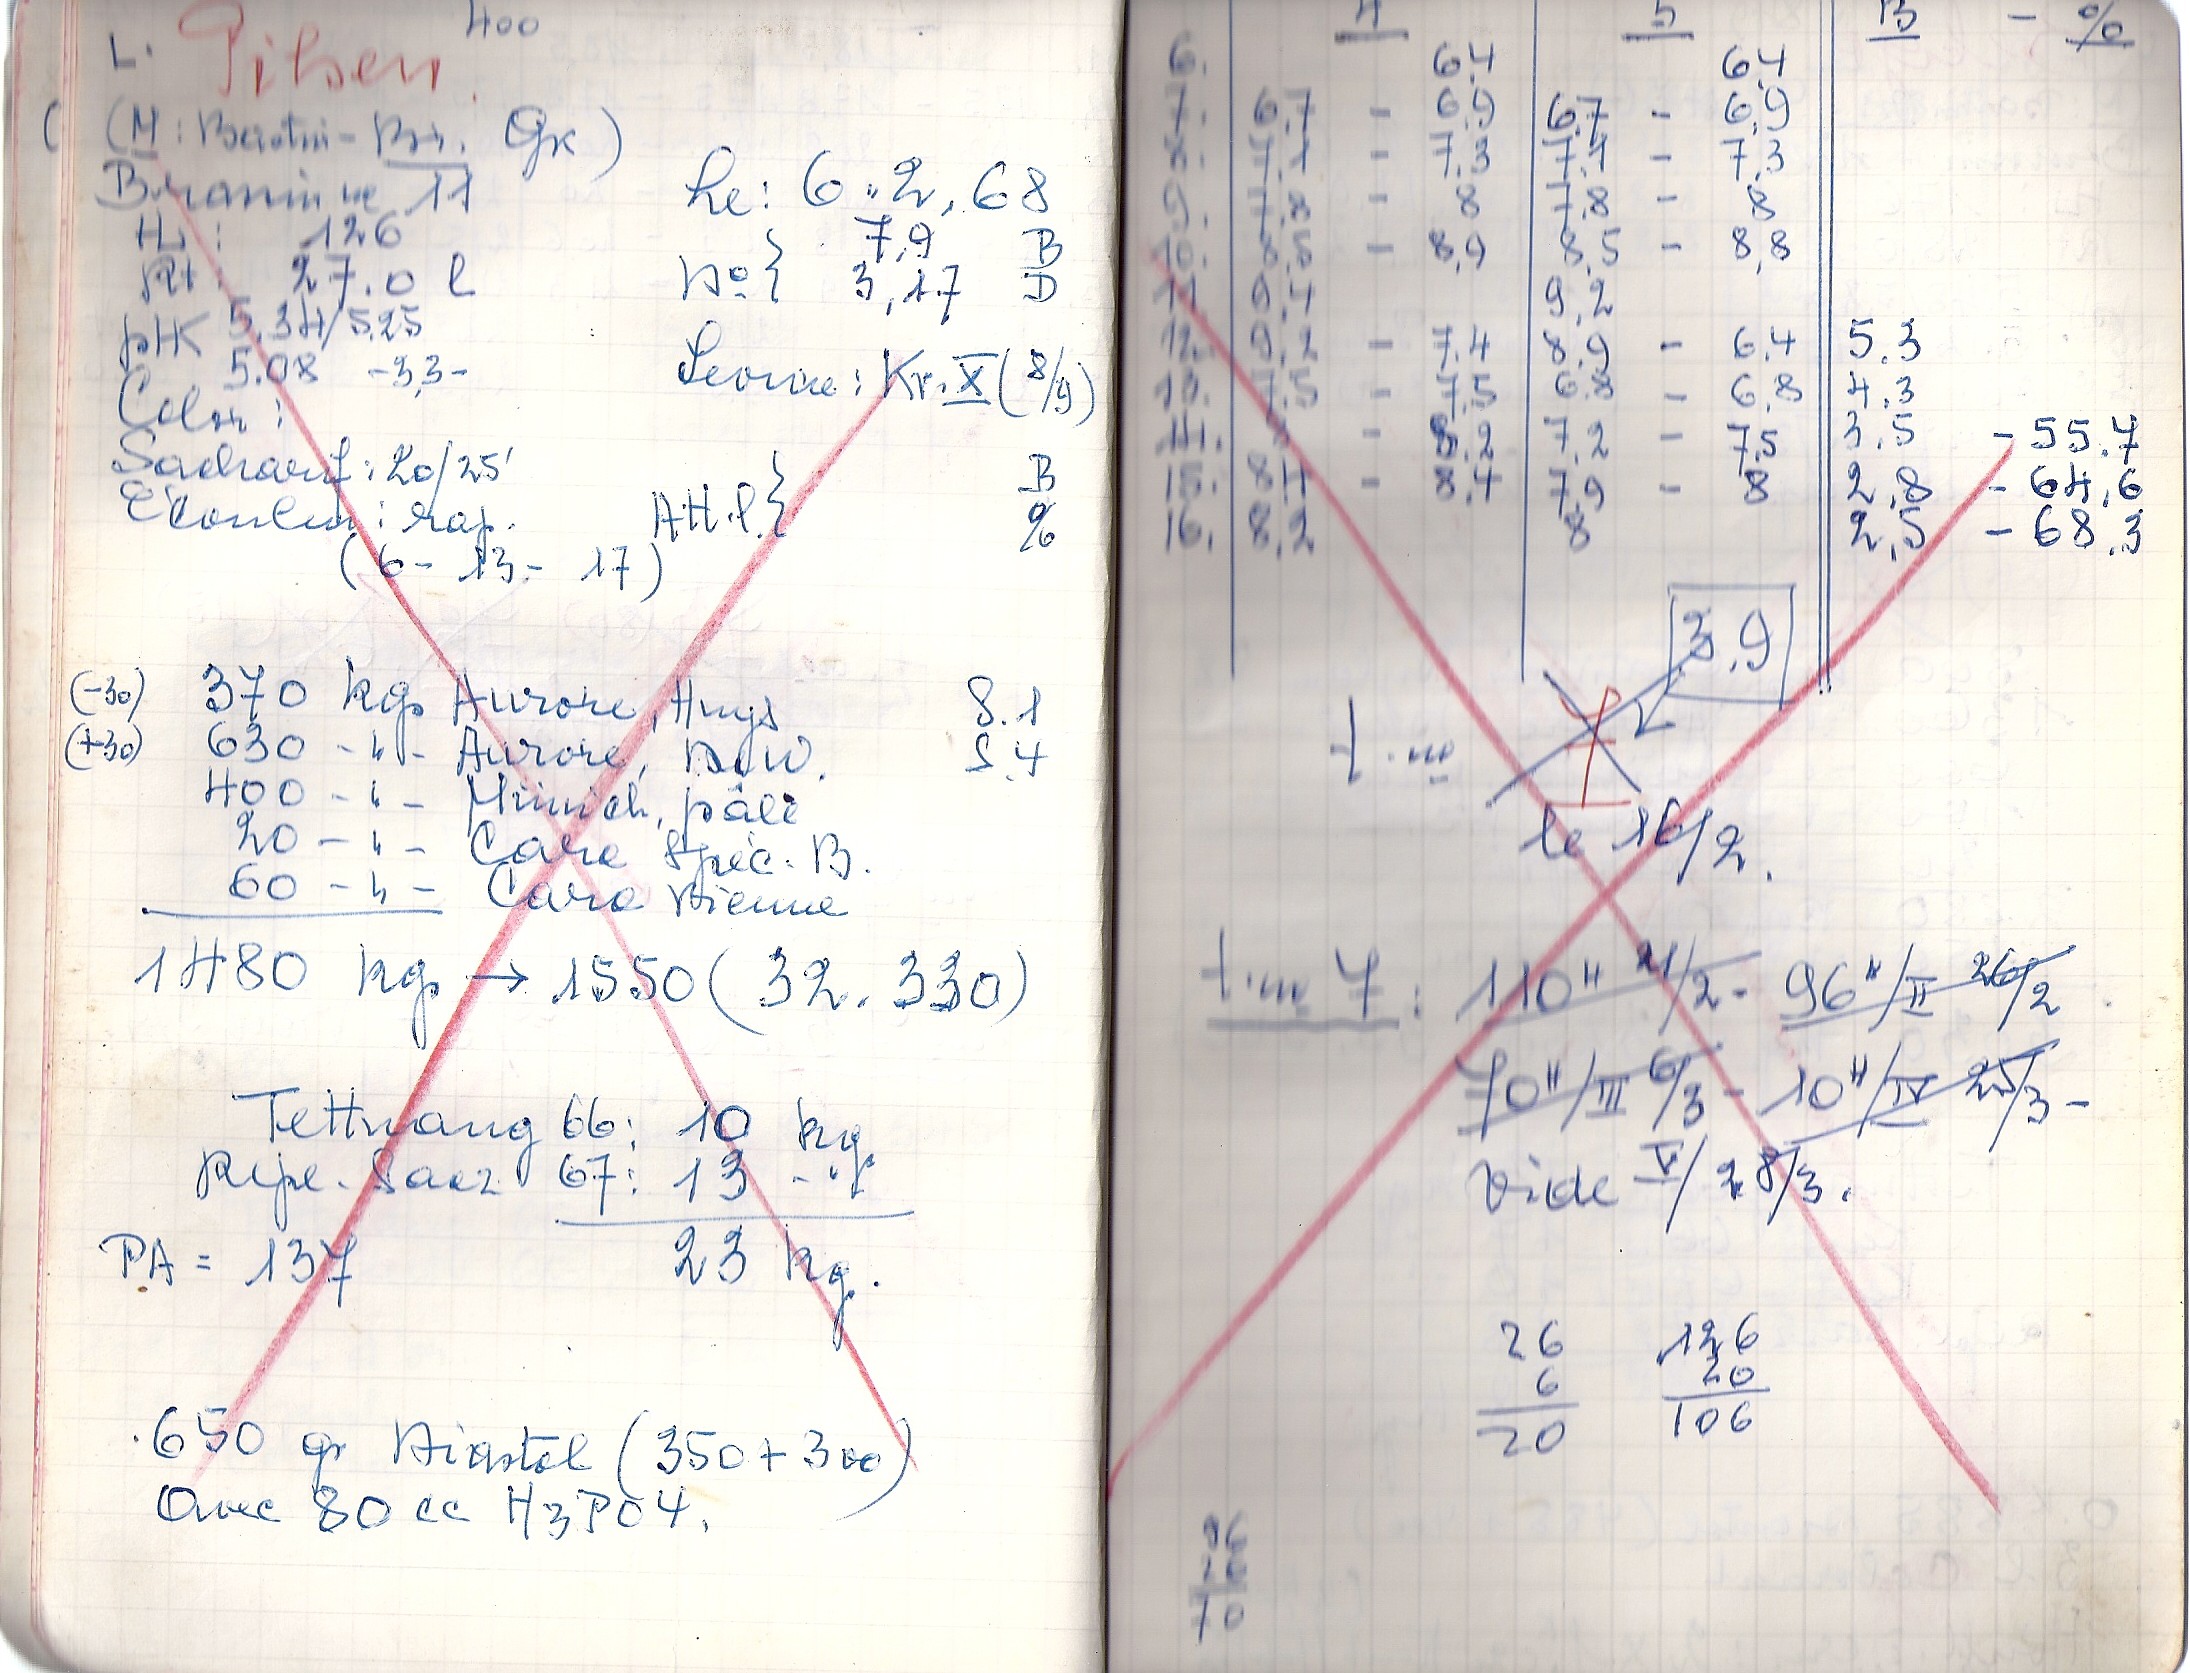 400
L. Pilsen.
Brassin ne 11
Le: 6.2.68
HL: 126
7,9 B
Rt: 27.0 l
No 3,17 D
pH K 5,34/5.25
5.08 -3,3-
Levure: Kr. X (8/9)
Color:
Sacharif: 20/25'
B
Ecoulem: rap.
AH.l. %
(6- 13- 17)
(-30) 370 kgs Aurore, Huys S.1
(+30) 630 -"- Aurore, D.W. S.4
400 -"- Münich, pâle
20 -"- Cara Spéc. B.
60 -"- Cara Vienne
1480 kgs → 1550 (32.330)
Tettnang 66: 10 kg.
Repe. Saaz 67: 13 -"-
PA = 137 23 kg.
650 gr Diastol (350+300)
Avec 80 cc H3PO4.
4 5 B - %
6. 6.4 6.4
7. 6.7 - 6.9 6.7 - 6.9
8. 7.1 - 7.3 7.1 - 7.3
9. 7.8 - 8 7.8 - 8
10. 8.5 - 8,9 8,5 - 8,8
11. 9.4 9.2
12. 9.2 - 7.4 8.9 - 6.4 5.3
13. 7.5 - 7.5 6.8 - 6.8 4.3
14. - 8.2 7.2 - 7.5 3.5 - 55.7
15. 8.4 - 8.4 7.9 - 8 2,8 - 64,6
16. 8,2 8 2,5 - 68.3
3.9
t.m 7
le 16/2.
t.m 7: 110H 21/2 - 96H/II 26/2.
70H/III 6/3 - 10H/IV 25/3 -
Vide V/28/3.
26 126
6 20
20 106
96
26
70